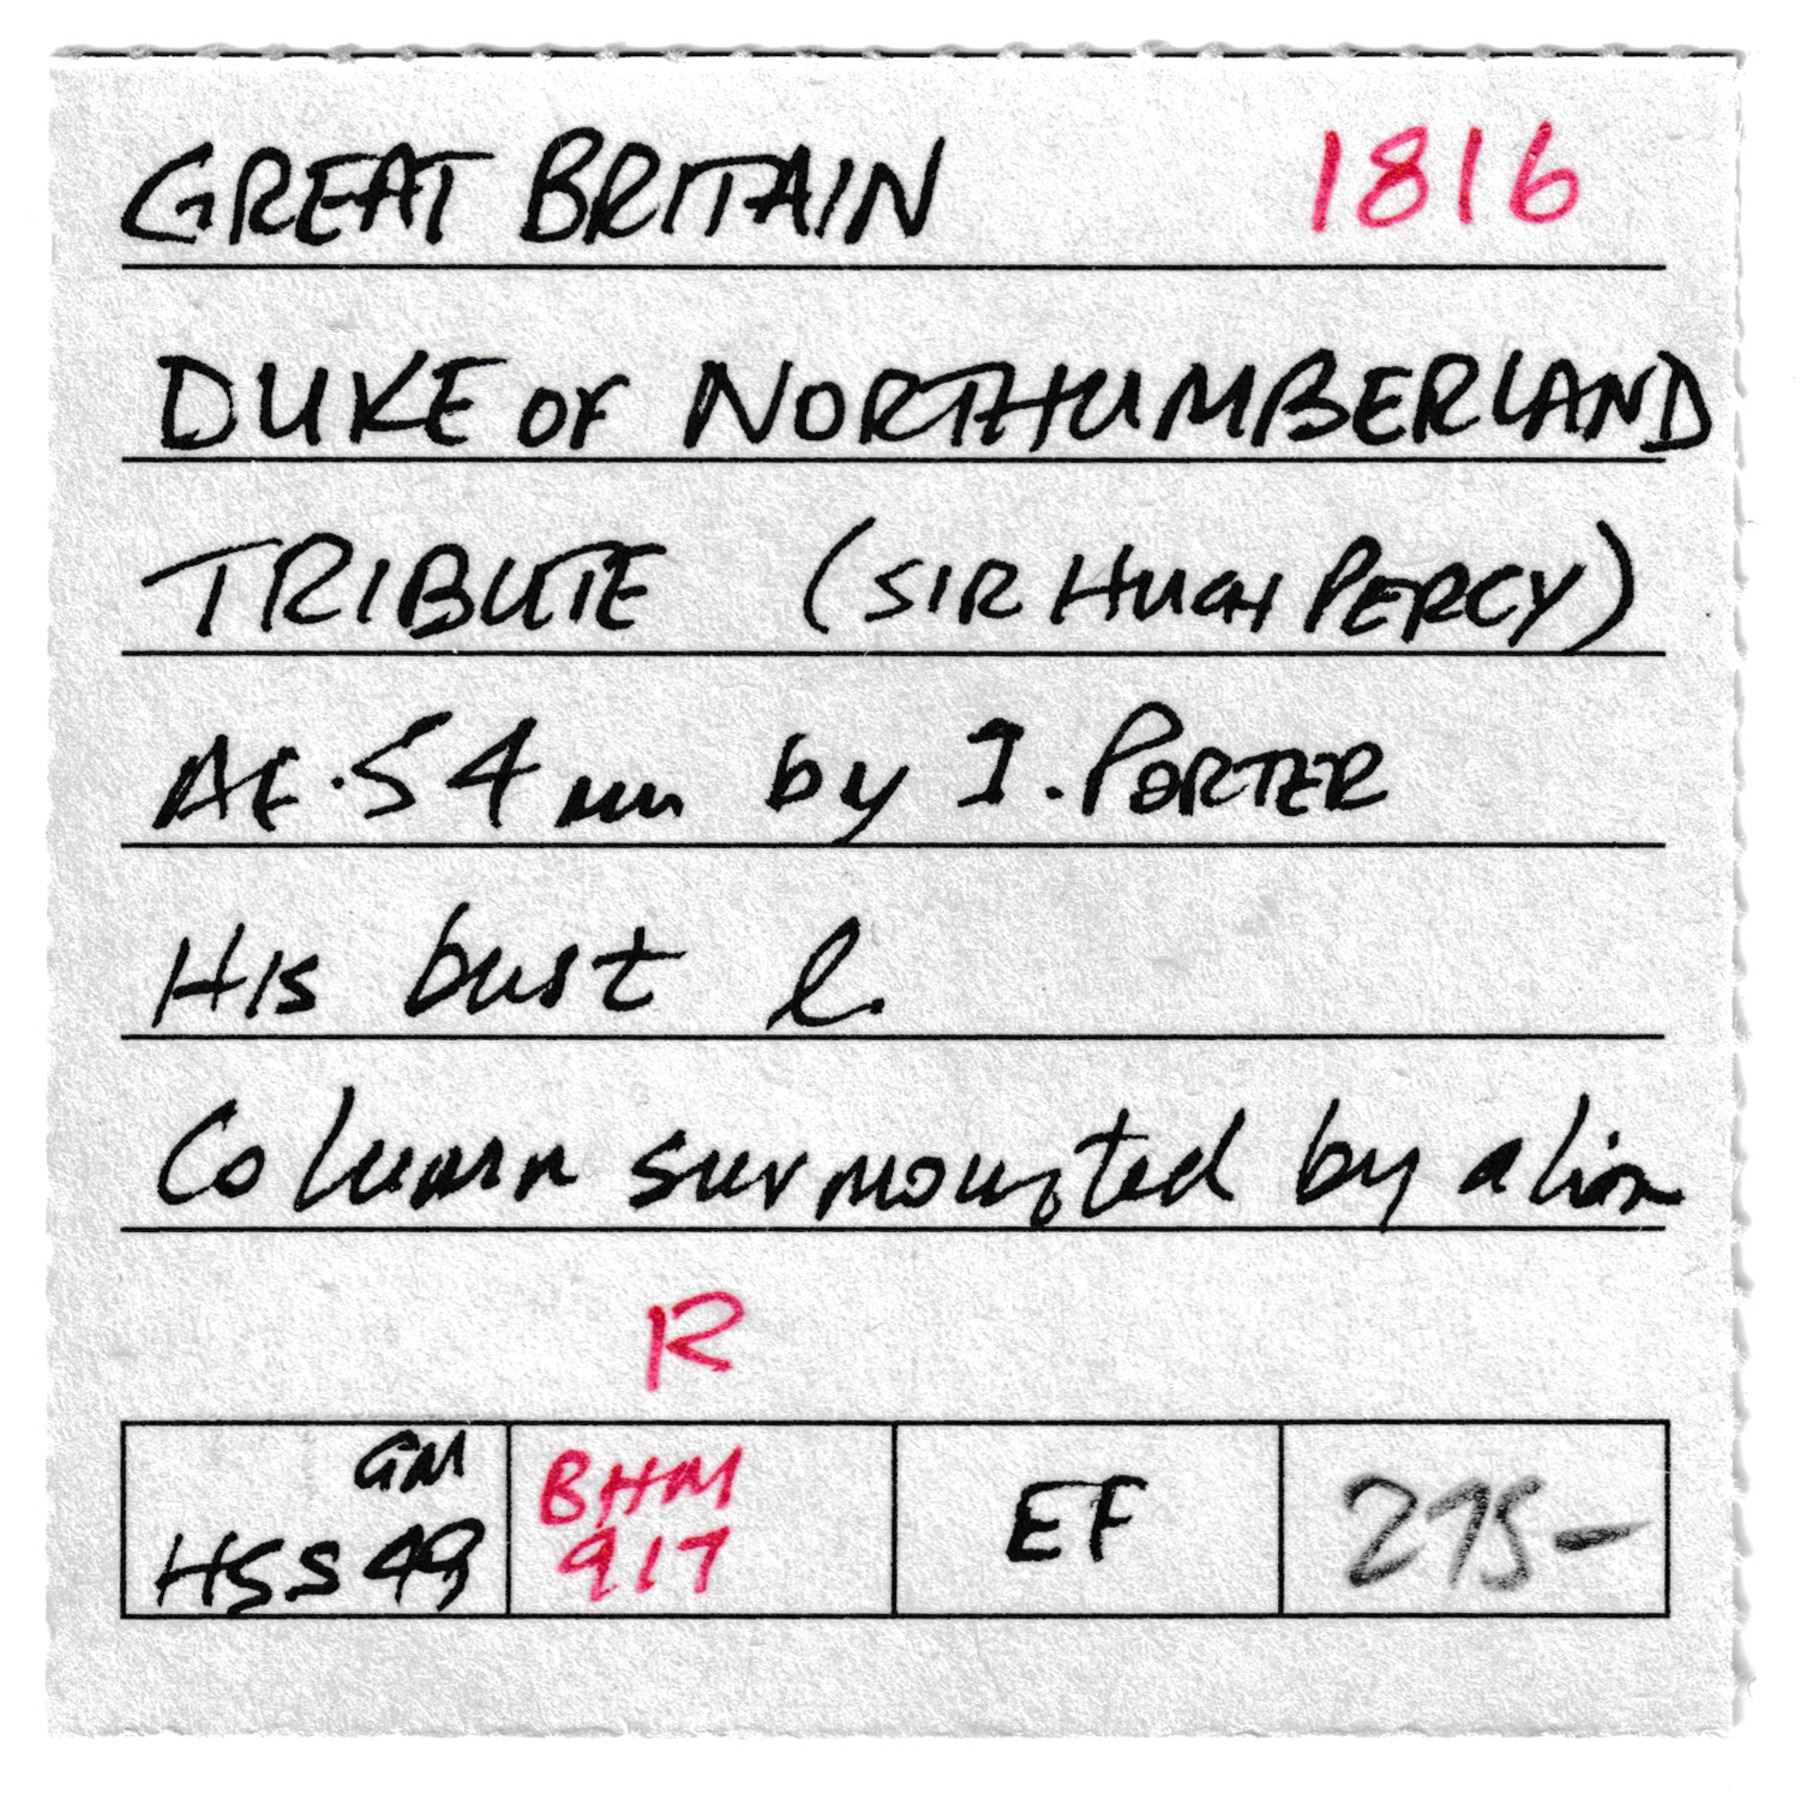 GREAT BRITAIN 1816
DUKE OF NORTHUMBERLAND
TRIBUTE (SIR HUGH PERCY)
AE.54mm by I.PORTER
His bust l.
Column surmounted by a lion
R
GM
HSS49
BHM
917
EF
275-